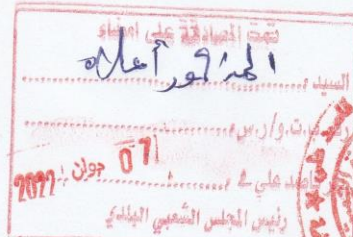 تمت المصادقة على امضاء
المذكور أعلاه
السيد
ر ت.و/ر.س
07 جوان 2022
علي في
رئيس المجلس الشعبي البلدي